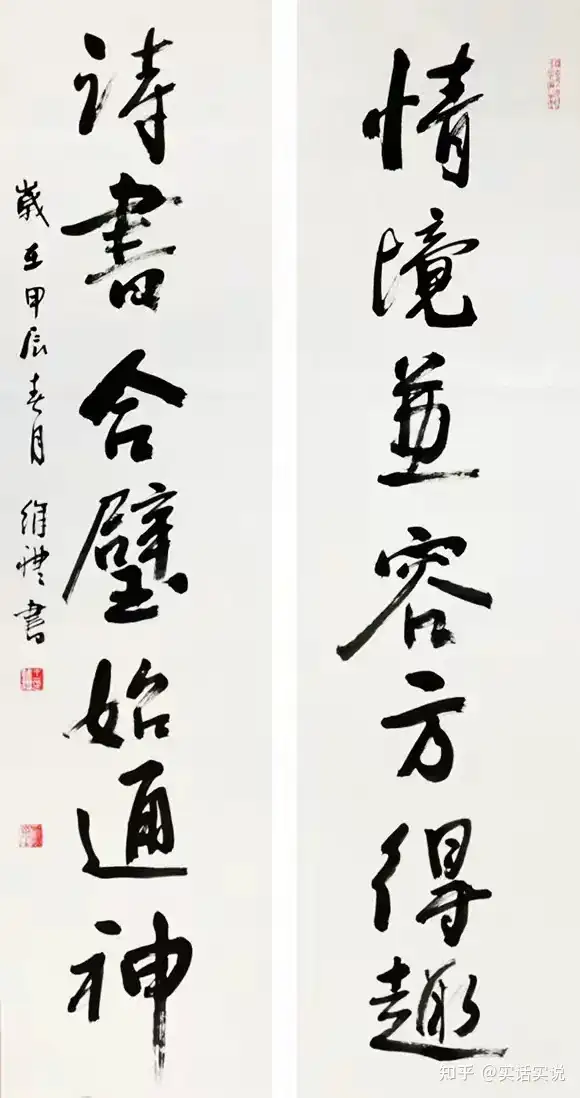 情境兼容方得趣
詩書合璧始通神
歲在甲辰春月 維禮書
知乎 @实话实说